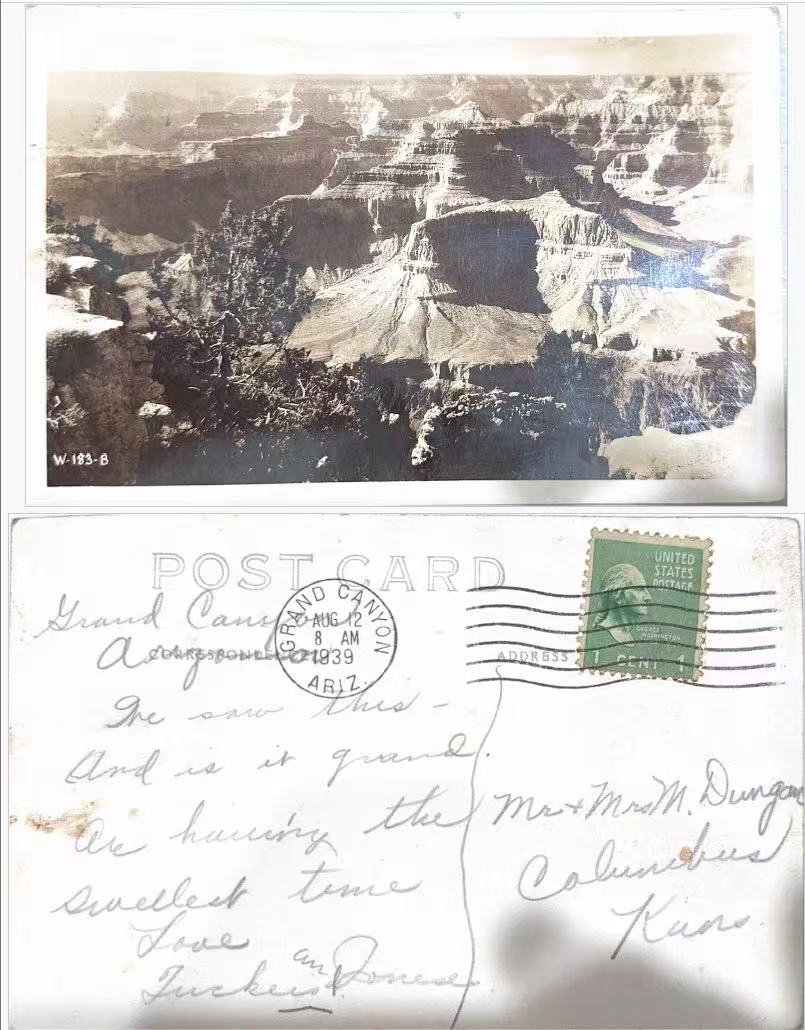 W-183-B
POST CARD
UNITED
STATES
POSTAGE
GEORGE
WASHINGTON
1 CENT 1
GRAND CANYON
AUG 12
8 AM
1939
ARIZ.
CORRESPONDENCE
ADDRESS
Grand Canyon
We saw this -
And is it grand.
Are having the
swellest time
Love
Tuckers an Joneses
Mr + Mrs M. Dungan
Columbus
Kans.